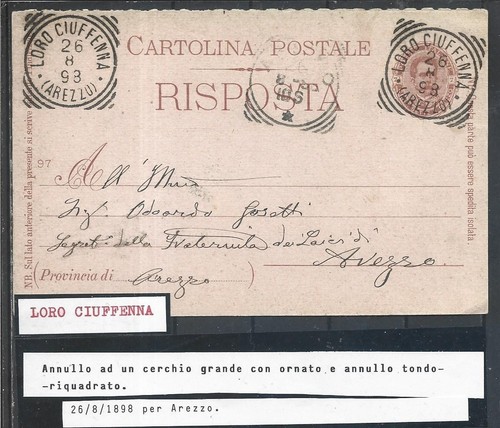 LORO CIUFFENNA
26
8
93
(AREZZO)
CARTOLINA POSTALE
RISPOSTA
LORO CIUFFENNA
26
8
93
(AREZZO)
NB. Sul lato anteriore della presente si scrive
questa parte può essere spedita isolata
97
All' Illmo
Sig. Odoardo Gosetti
Segret. della Fraternita dei Laici di
Arezzo
(Provincia di Arezzo)
LORO CIUFFENNA
Annullo ad un cerchio grande con ornato e annullo tondo-
-riquadrato.
26/8/1898 per Arezzo.